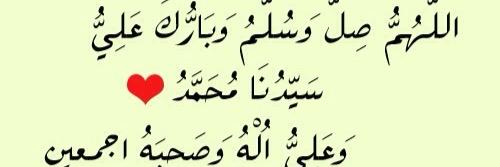 اللّهُمُّ صِلِّ وَسُلّمُ وَبَارُّكَ عَلِيُّ
سَيّدُنَا مُحَمَّدُ ❤
وَعَلِيُّ اُلْهُ وَصَحبَهُ اجمعين